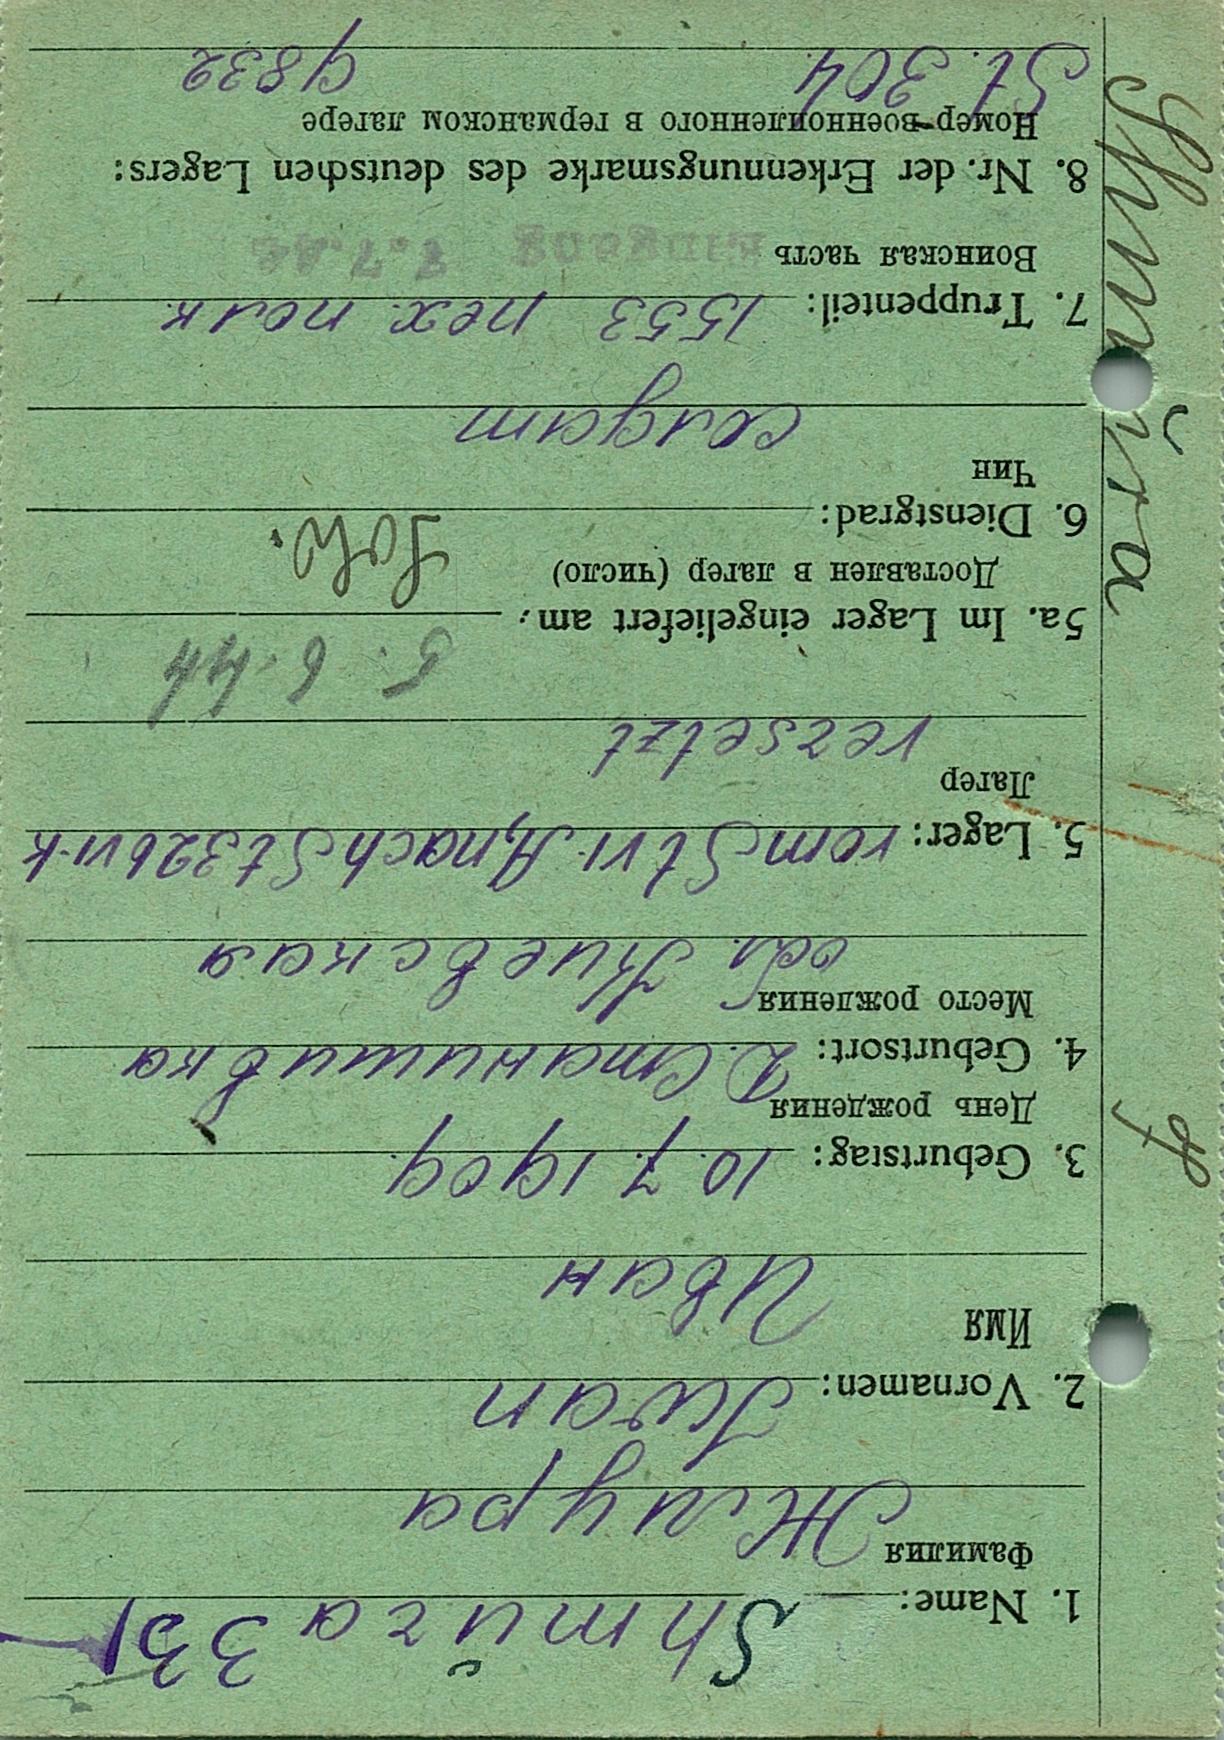 1. Name: Shmŭra 331
Фамилия Жмура
2. Vornamen: Iwan
Имя Иван
3. Geburtstag: 10.7.1909.
День рождения
4. Geburtsort: Д. Станишивка
Место рождения обл. Киевская
5. Lager: vom St VI-A, nach St 326 VI-K
Лагер versetzt
5.6.44
5a. Im Lager eingeliefert am:
Доставлен в лагер (число) Sow.
6. Dienstgrad:
Чин солдат
7. Truppenteil: 1553 пех. полк
Воинская часть Eingang 7.7.44
8. Nr. der Erkennungsmarke des deutschen Lagers:
Номер военнопленного в германском лагере
St. 304 9832
Shmŭra